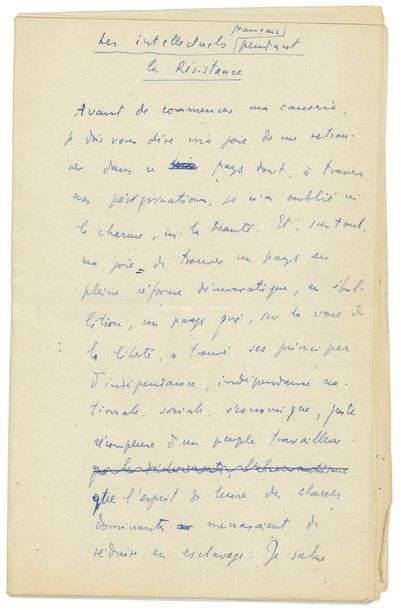 français
Les intellectuels pendant
la Résistance
Avant de commencer ma causerie,
je dois vous dire ma joie de me retrou-
ver dans ce pays dont, à travers
mes pérégrinations, je n'ai oublié ni
le charme, ni la beauté. Et, surtout,
ma joie de trouver un pays en
pleine réforme démocratique, en ébul-
lition, un pays qui, sur la voie de
la liberté, a trouvé ses principes
d'indépendance, indépendance na-
tionale, sociale, économique, juste
récompense d'un peuple travailleur
que l'esprit de lucre des classes
dominantes menaçaient de
réduire en esclavage. Je salue